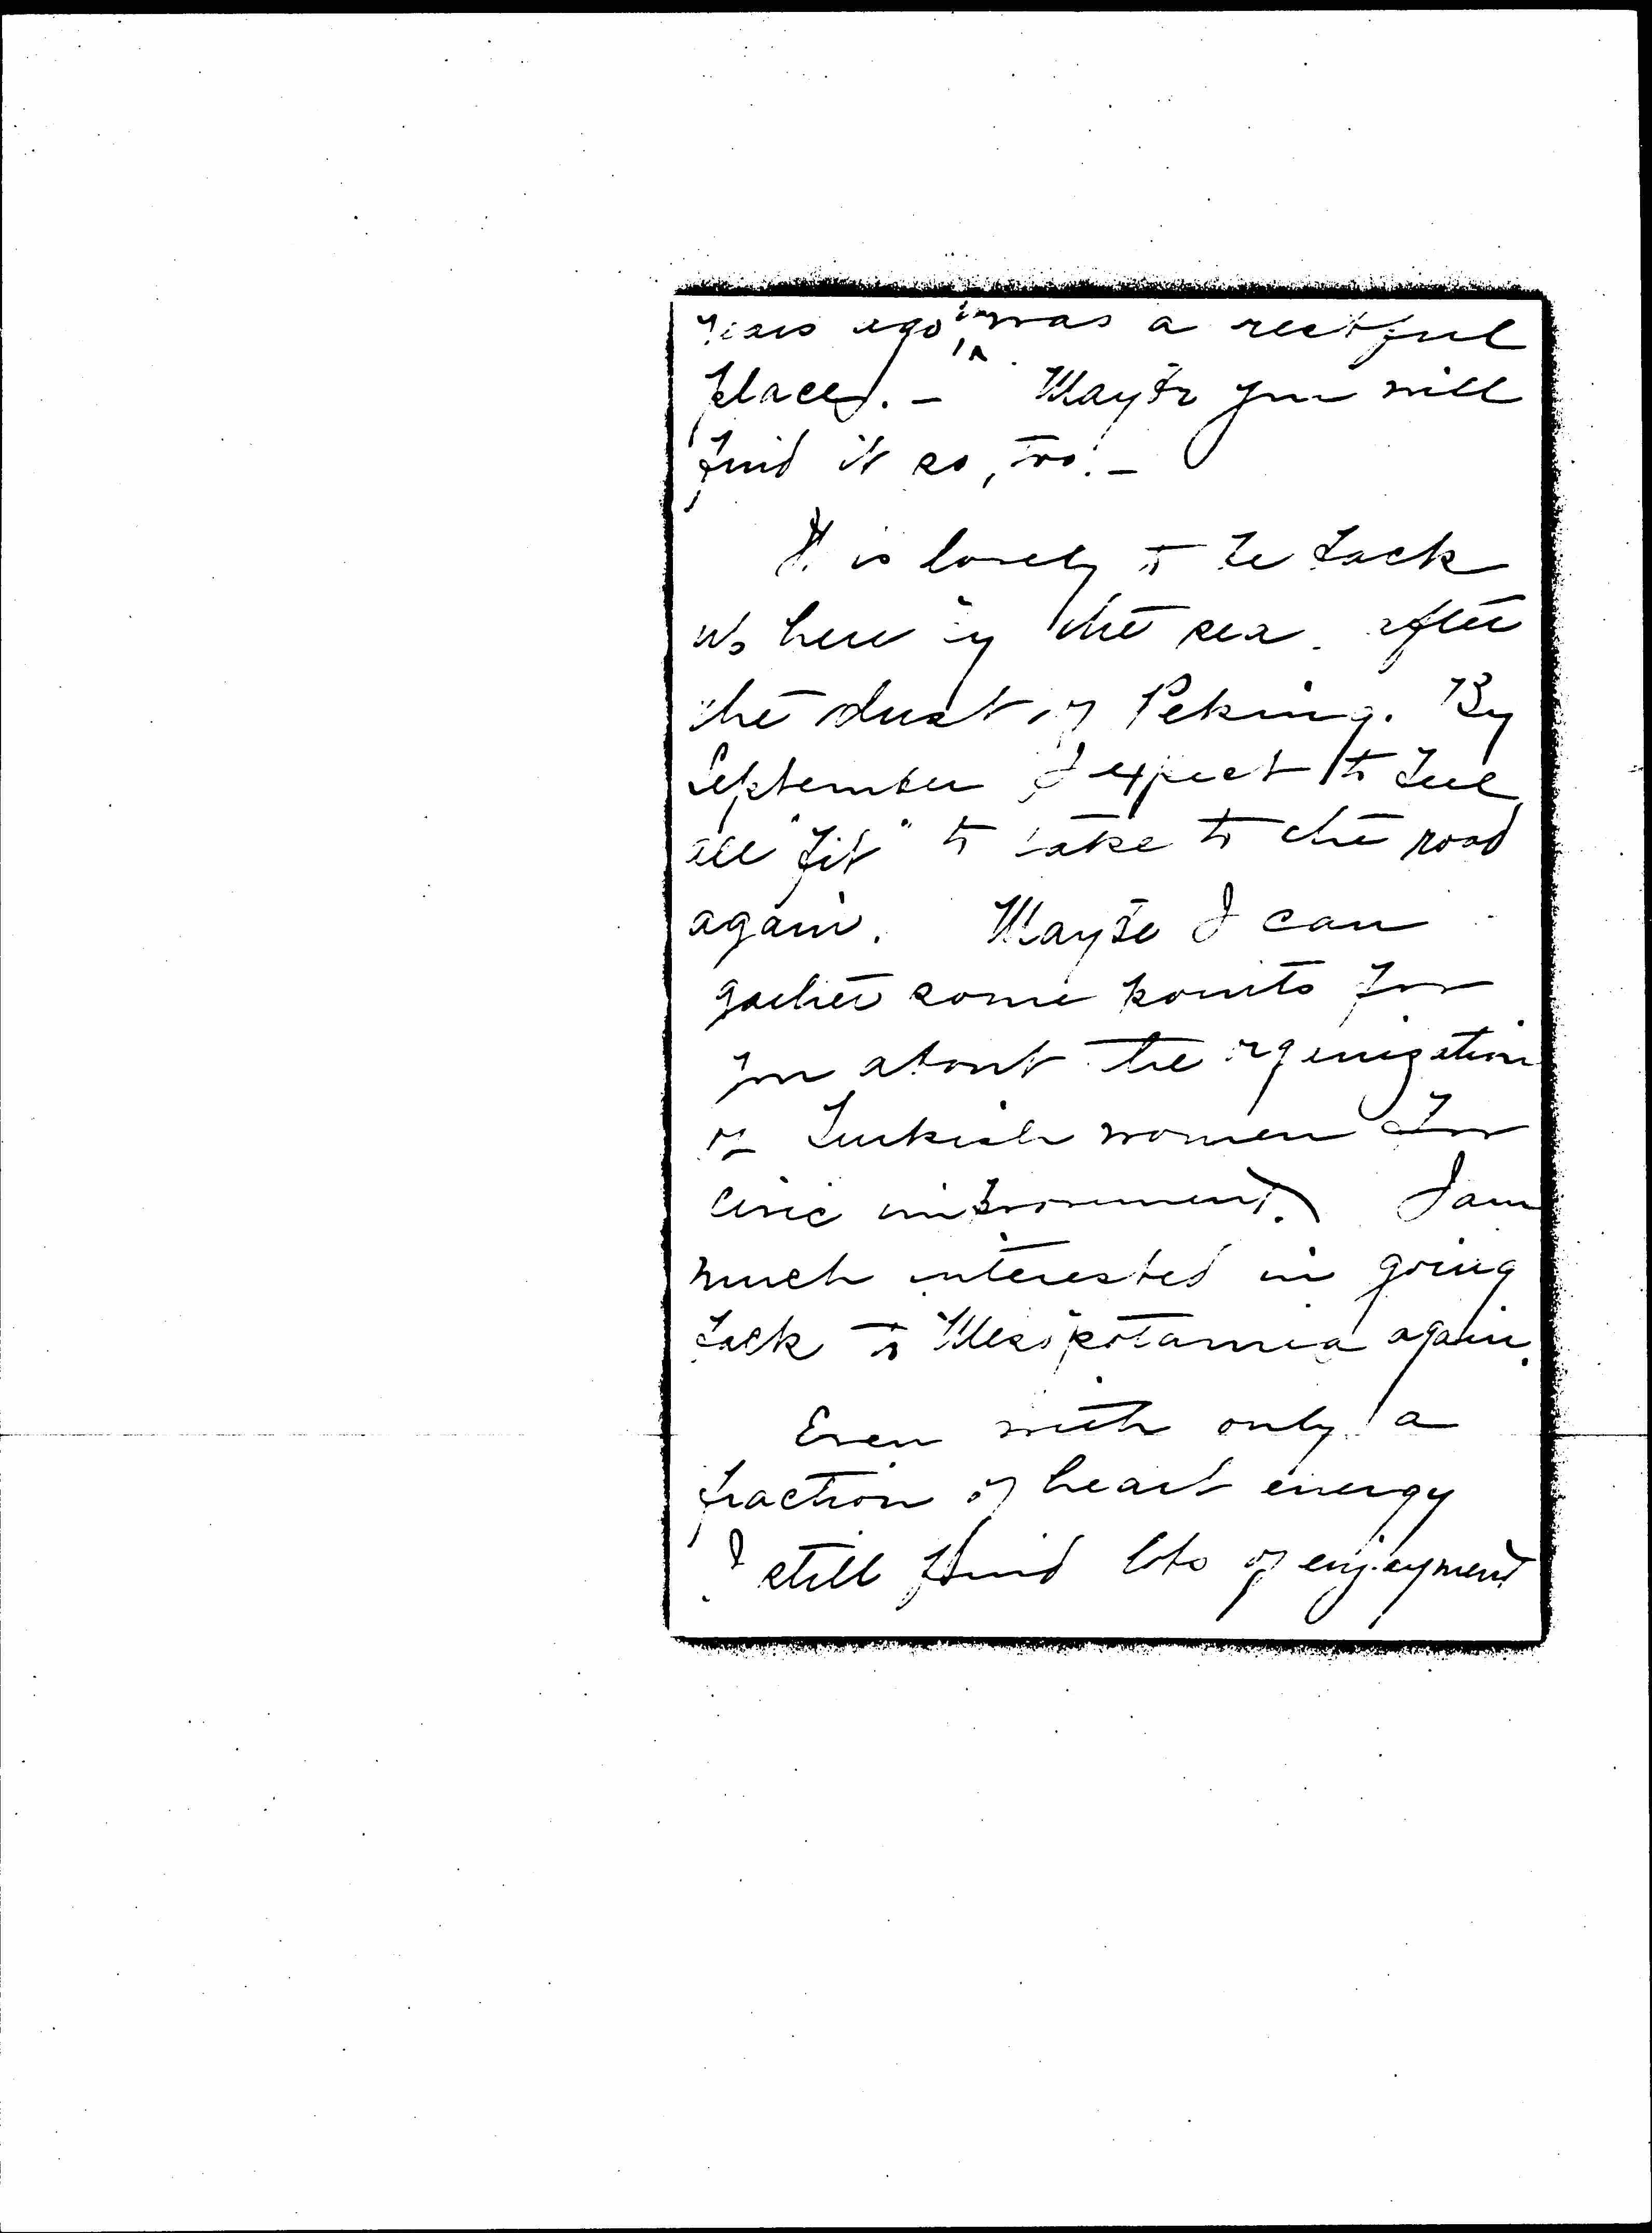 years ago, it was a restful
place. – Maybe you will
find it so, too. –
It is lovely to be back
here by the sea after
the dust of Peking. By
September I expect to feel
all "fit" to take to the road
again. Maybe I can
gather some points for
you about the organization
of Turkish women for
civic improvement. I am
much interested in going
back to Mesopotamia again.
Even with only a
fraction of heart energy
I still find lots of enjoyment